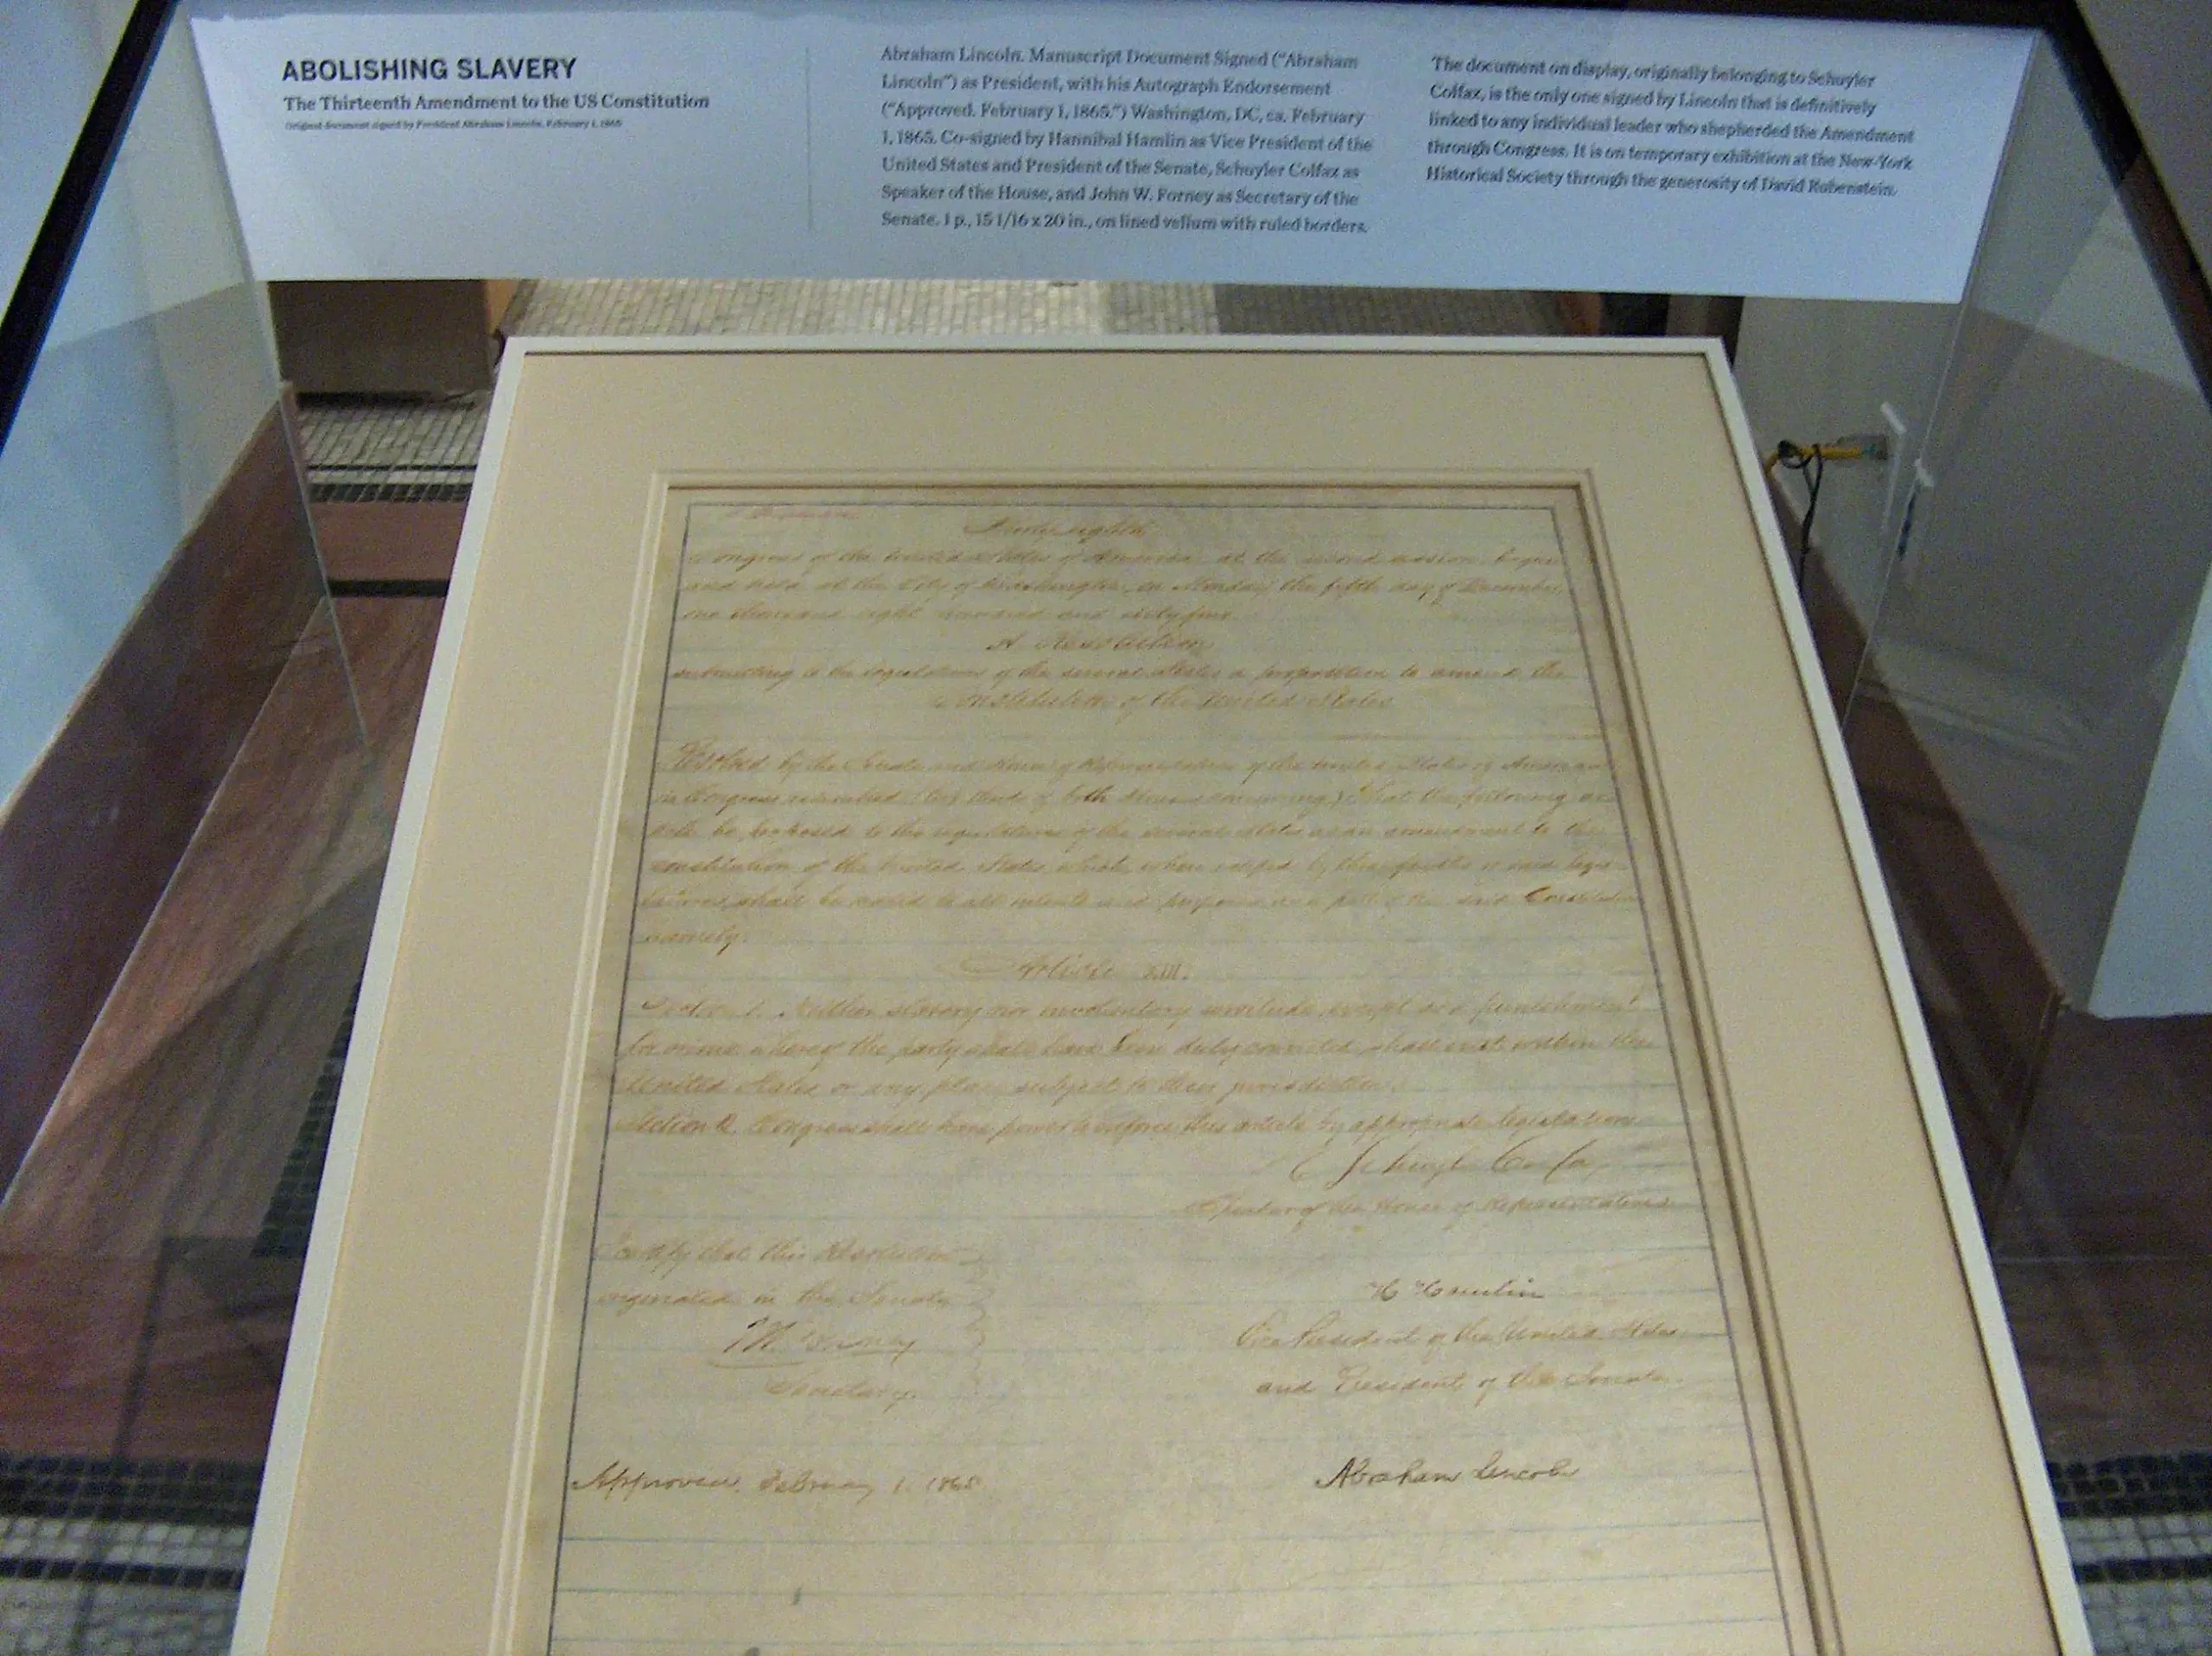 ABOLISHING SLAVERY
The Thirteenth Amendment to the US Constitution
Original document signed by President Abraham Lincoln, February 1, 1865
Abraham Lincoln. Manuscript Document Signed ("Abraham
Lincoln") as President, with his Autograph Endorsement
("Approved. February 1, 1865.") Washington, DC, ca. February
1, 1865. Co-signed by Hannibal Hamlin as Vice President of the
United States and President of the Senate, Schuyler Colfax as
Speaker of the House, and John W. Forney as Secretary of the
Senate. 1 p., 15 1/16 x 20 in., on lined vellum with ruled borders.
The document on display, originally belonging to Schuyler
Colfax, is the only one signed by Lincoln that is definitively
linked to any individual leader who shepherded the Amendment
through Congress. It is on temporary exhibition at the New-York
Historical Society through the generosity of David Rubenstein.
Congress of the United States of America, at the second session, begun
and held at the City of Washington, on Monday the fifth day of December,
one thousand eight hundred and sixty four
A Resolution
submitting to the legislatures of the several States a proposition to amend the
Constitution of the United States
Resolved by the Senate and House of Representatives of the United States of America
in Congress assembled, (two thirds of both Houses concurring,) That the following
be proposed to the legislatures of the several States as an amendment to the
constitution of the United States, which, when ratified by three fourths of said legis-
latures, shall be valid to all intents and purposes as a part of the said Constitution
namely:
Article XIII.
Section 1. Neither slavery nor involuntary servitude, except as a punishment
for crime whereof the party shall have been duly convicted, shall exist within the
United States or any place subject to their jurisdiction.
Section 2. Congress shall have power to enforce this article by appropriate legislation.
Schuyler Colfax
Speaker of the House of Representatives
I certify that this Resolution
originated in the Senate
Forney
Secretary.
H Hamlin
Vice President of the United States
and President of the Senate.
Approved. February 1, 1865
Abraham Lincoln